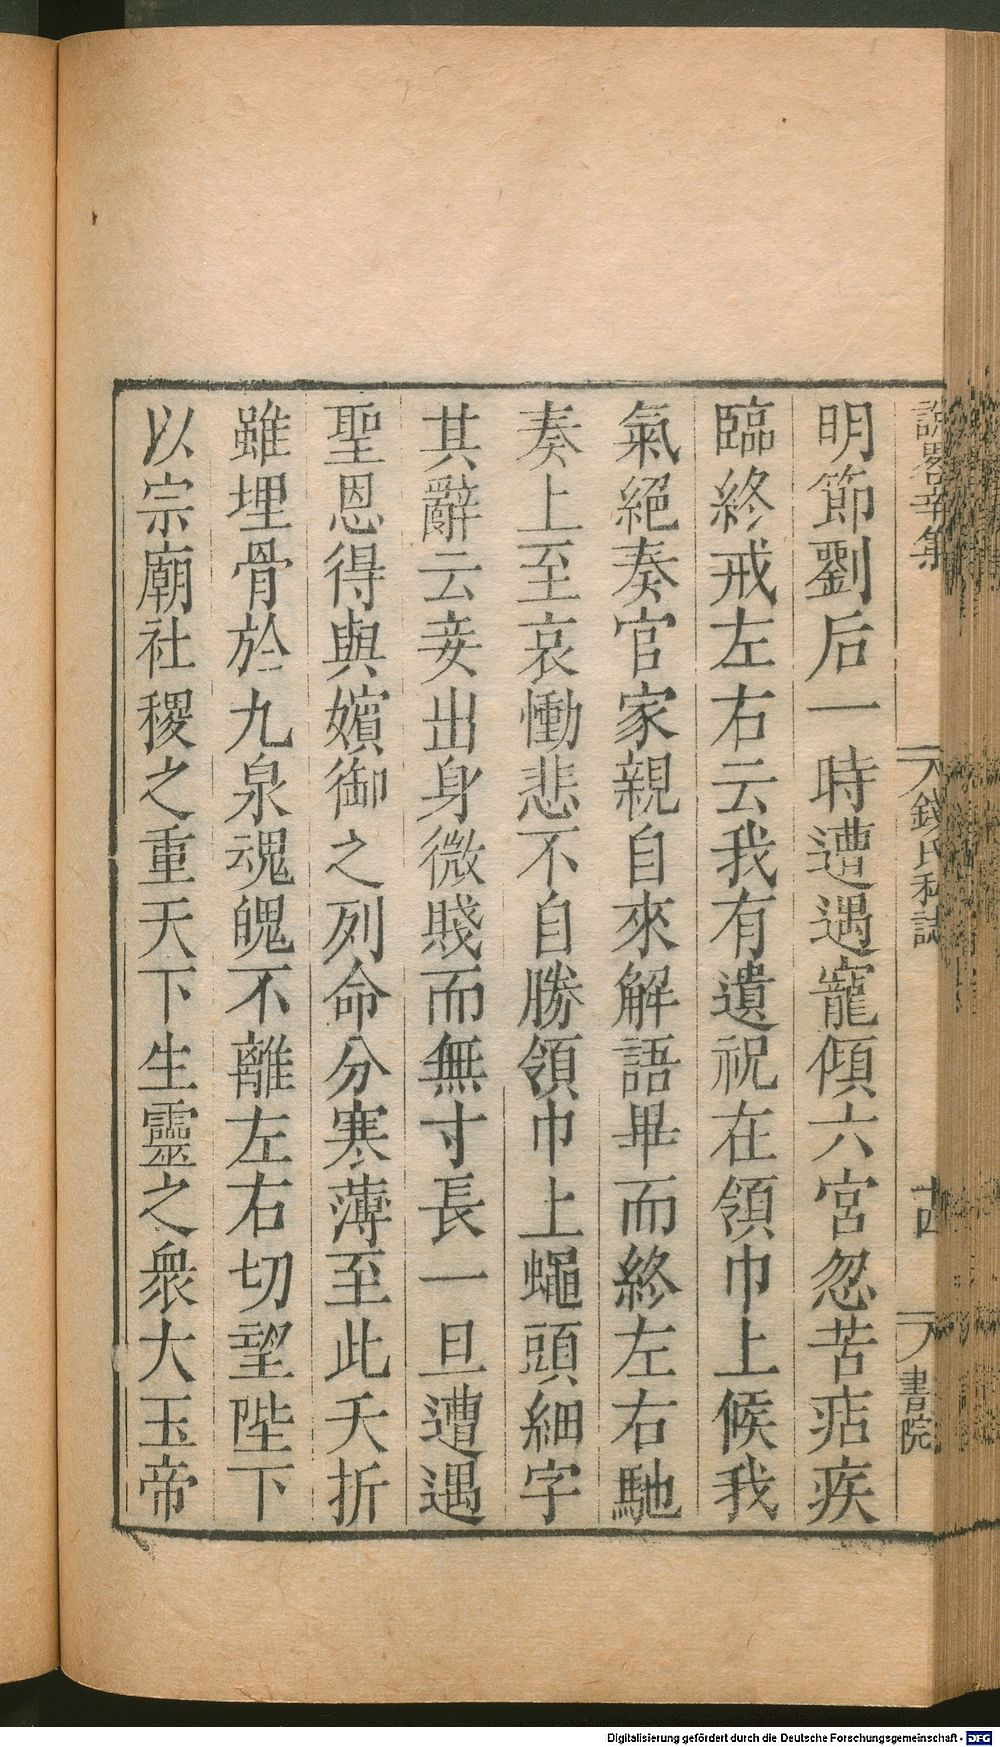 說畧辛集 錢氏私誌 十四 書院
明節劉后一時遭遇寵傾六宮忽苦痁疾
臨終戒左右云我有遺祝在領巾上候我
氣絕奏官家親自來解語畢而終左右馳
奏上至哀慟悲不自勝領巾上蠅頭細字
其辭云妾出身微賤而無寸長一旦遭遇
聖恩得與嬪御之列命分寒薄至此夭折
雖埋骨於九泉魂魄不離左右切望陛下
以宗廟社稷之重天下生靈之衆大玉帝
Digitalisierung gefördert durch die Deutsche Forschungsgemeinschaft - DFG